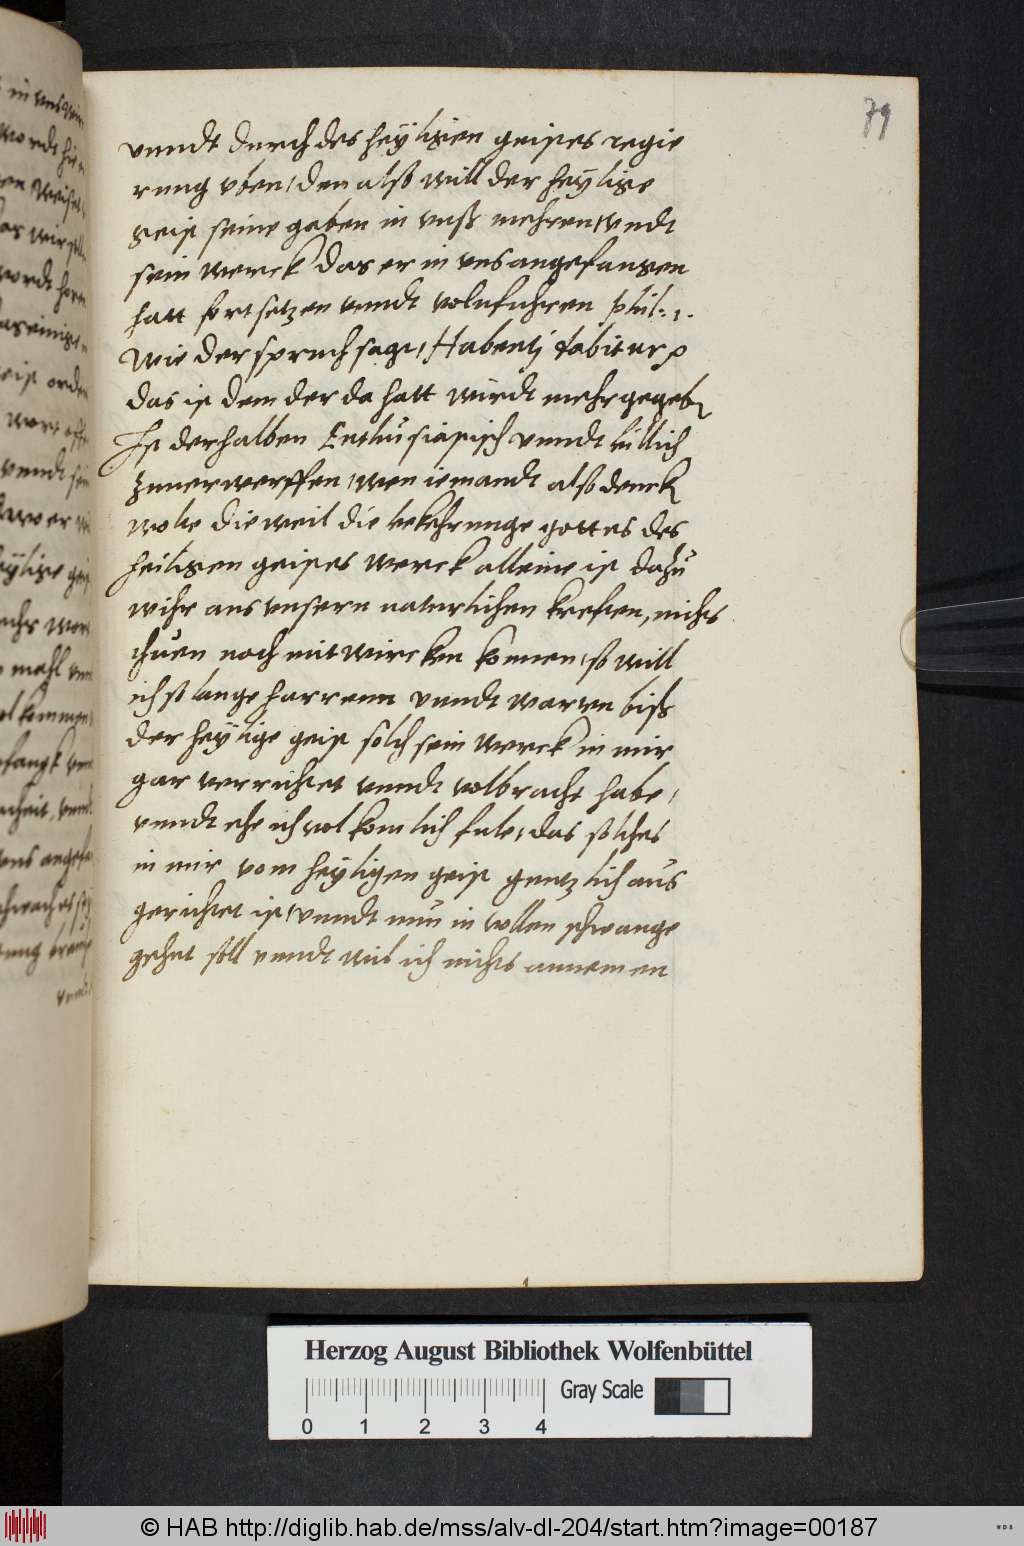 79
vnndt durch des heyligen geistes regie
rung vben, den also will der heylige
geist seine gaben in vnß mehren, vndt
sein werck das er in vns angefangen
hatt fort setzen vnndt volnfuhren phil: 1.
Wie der spruch sagt, Habentj dabitur
das ist dem der da hatt wirdt mehr gegeb
Ist derhalben Enthusiastisch vnndt billich
zuuerwerffen, wen iemandt also denck
wolte die weil die bekehrunge gottes des
heiligen geistes werck alleine ist dazu
wihr aus vnsern naturlichen kreften, nichts
thuen noch mit wircken konnen, so will
ich so lange harrenn vnndt warten biß
der heylige geist solch sein werck in mir
gar verrichtet vnndt volbracht habe,
vnndt ehe ich volkomlich fule, das solches
in mir vom heyligen geist gentzlich aus
gerichtet ist, vnndt nun in vollen schwange
gehet soll vnndt wil ich nichts annemen
Herzog August Bibliothek Wolfenbüttel
0 1 2 3 4
Gray Scale
© HAB http://diglib.hab.de/mss/alv-dl-204/start.htm?image=00187